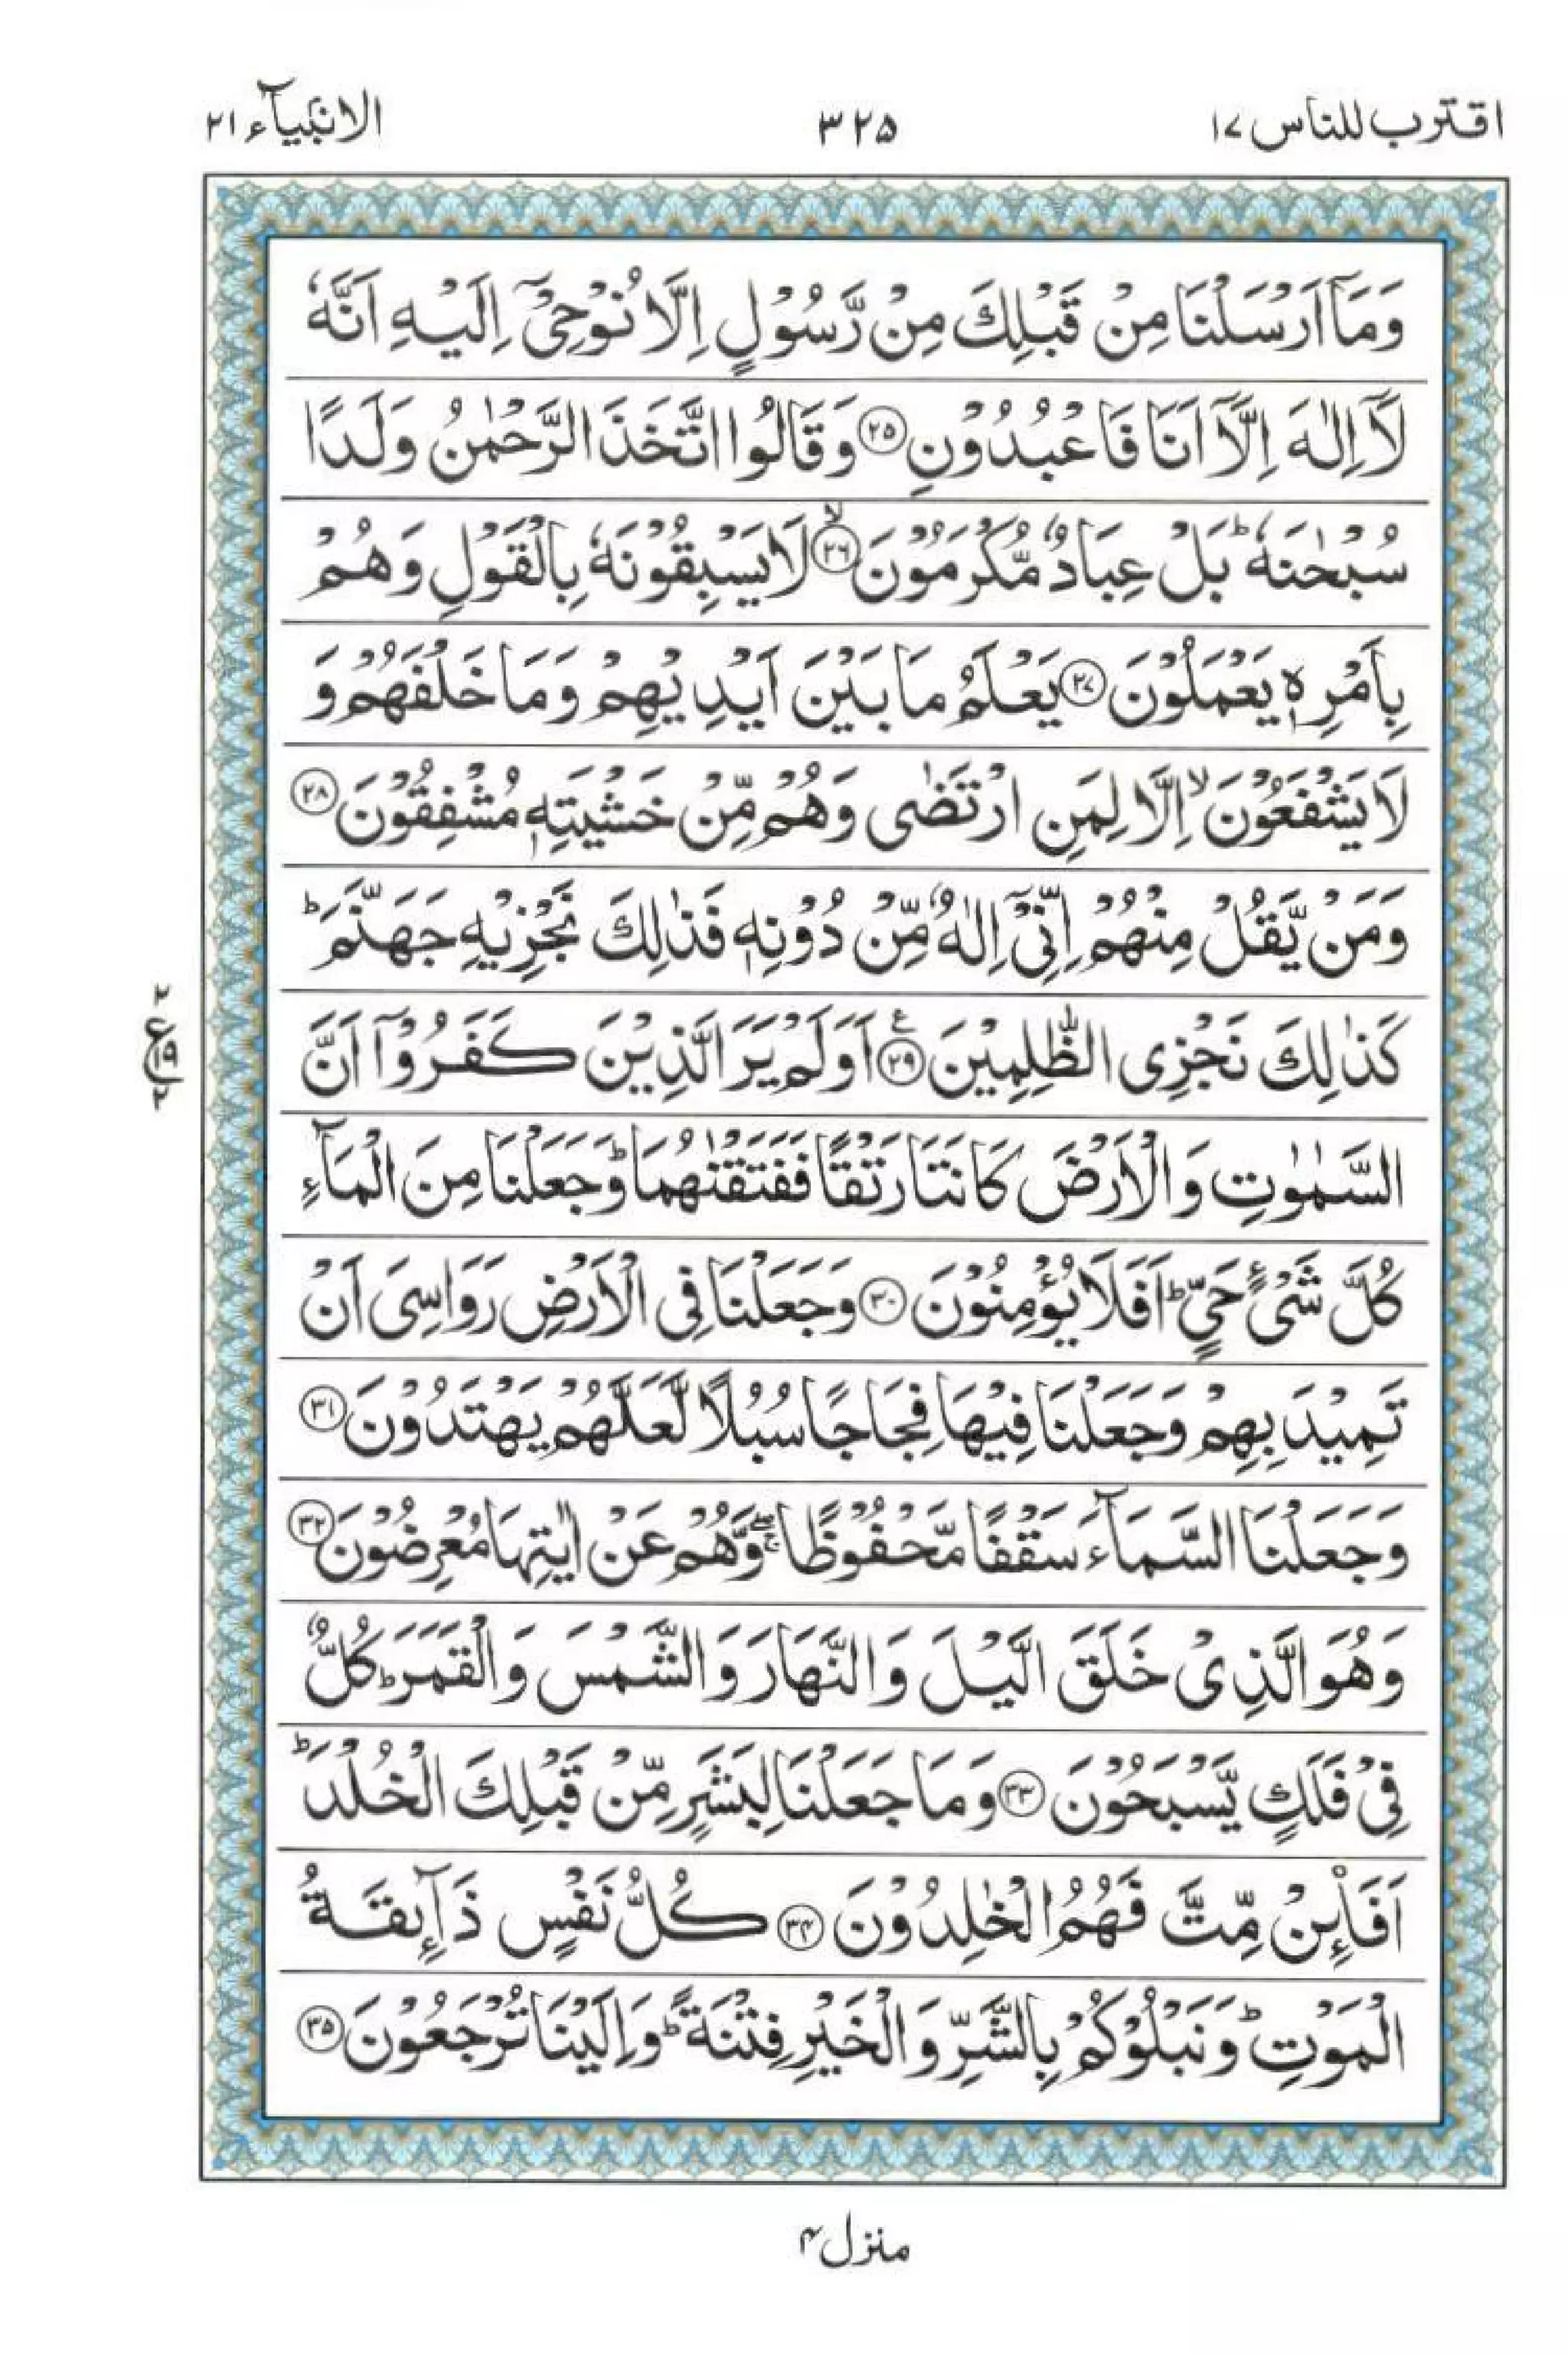 اقترب للناس ١٧
٣٢٥
الانبيآء ٢١
وَمَآ اَرْسَلْنَا مِنْ قَبْلِكَ مِنْ رَّسُوْلٍ اِلَّا نُوْحِیْۤ اِلَيْهِ اَنَّهٗ
لَاۤ اِلٰهَ اِلَّاۤ اَنَا فَاعْبُدُوْنِ ۝٢٥ وَقَالُوا اتَّخَذَ الرَّحْمٰنُ وَلَدًا
سُبْحٰنَهٗ ؕ بَلْ عِبَادٌ مُّكْرَمُوْنَ ۝٢٦ ۙ لَا يَسْبِقُوْنَهٗ بِالْقَوْلِ وَهُمْ
بِاَمْرِهٖ يَعْمَلُوْنَ ۝٢٧ يَعْلَمُ مَا بَيْنَ اَيْدِيْهِمْ وَمَا خَلْفَهُمْ وَ
لَا يَشْفَعُوْنَ ۙ اِلَّا لِمَنِ ارْتَضٰى وَهُمْ مِّنْ خَشْيَتِهٖ مُشْفِقُوْنَ ۝٢٨
وَمَنْ يَّقُلْ مِنْهُمْ اِنِّیْۤ اِلٰهٌ مِّنْ دُوْنِهٖ فَذٰلِكَ نَجْزِيْهِ جَهَنَّمَ ؕ
كَذٰلِكَ نَجْزِی الظّٰلِمِيْنَ ۝٢٩ ع اَوَلَمْ يَرَ الَّذِيْنَ كَفَرُوْۤا اَنَّ
السَّمٰوٰتِ وَالْاَرْضَ كَانَتَا رَتْقًا فَفَتَقْنٰهُمَا ؕ وَجَعَلْنَا مِنَ الْمَآءِ
كُلَّ شَیْءٍ حَیٍّ ؕ اَفَلَا يُؤْمِنُوْنَ ۝٣٠ وَجَعَلْنَا فِی الْاَرْضِ رَوَاسِیَ اَنْ
تَمِيْدَ بِهِمْ وَجَعَلْنَا فِيْهَا فِجَاجًا سُبُلًا لَّعَلَّهُمْ يَهْتَدُوْنَ ۝٣١
وَجَعَلْنَا السَّمَآءَ سَقْفًا مَّحْفُوْظًا ۖۚ وَّهُمْ عَنْ اٰيٰتِهَا مُعْرِضُوْنَ ۝٣٢
وَهُوَ الَّذِیْ خَلَقَ الَّيْلَ وَالنَّهَارَ وَالشَّمْسَ وَالْقَمَرَ ؕ كُلٌّ
فِیْ فَلَكٍ يَّسْبَحُوْنَ ۝٣٣ وَمَا جَعَلْنَا لِبَشَرٍ مِّنْ قَبْلِكَ الْخُلْدَ ؕ
اَفَا۟ئِنْ مِّتَّ فَهُمُ الْخٰلِدُوْنَ ۝٣٤ كُلُّ نَفْسٍ ذَآئِقَةُ
الْمَوْتِ ؕ وَنَبْلُوْكُمْ بِالشَّرِّ وَالْخَيْرِ فِتْنَةً ؕ وَاِلَيْنَا تُرْجَعُوْنَ ۝٣٥
٢
ع ١٩
٢
منزل ٤